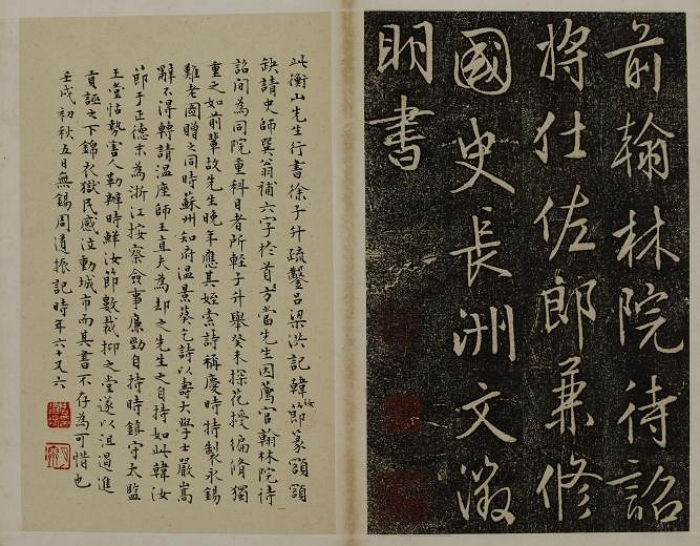 前翰林院待詔
將仕佐郎兼修
國史長洲文徵
明書
此衡山先生行書徐子升疏鑿吕梁洪記韓汝節篆額額
缺請史師巽翁補六字於首方當先生因薦官翰林院待
詔間為同院重科目者所輕子升舉癸未探花授編脩獨
重之如前輩故先生晚年應其姪索詩稱慶時特製永錫
難老圖贈之同時蘇州知府温景葵乞詩以壽大學士嚴嵩
辭不得轉請温座師王直夫為却之先生之自持如此韓汝
節于正德末為浙江按察僉事廉勁自持時鎮守太監
王堂怙勢害人勒辦時鮮汝節數裁抑之堂遂以沮遏進
貢誣之下錦衣獄民感泣動城市而其書不存為可惜也
壬戌初秋五日無錫周道振記時年六十又六